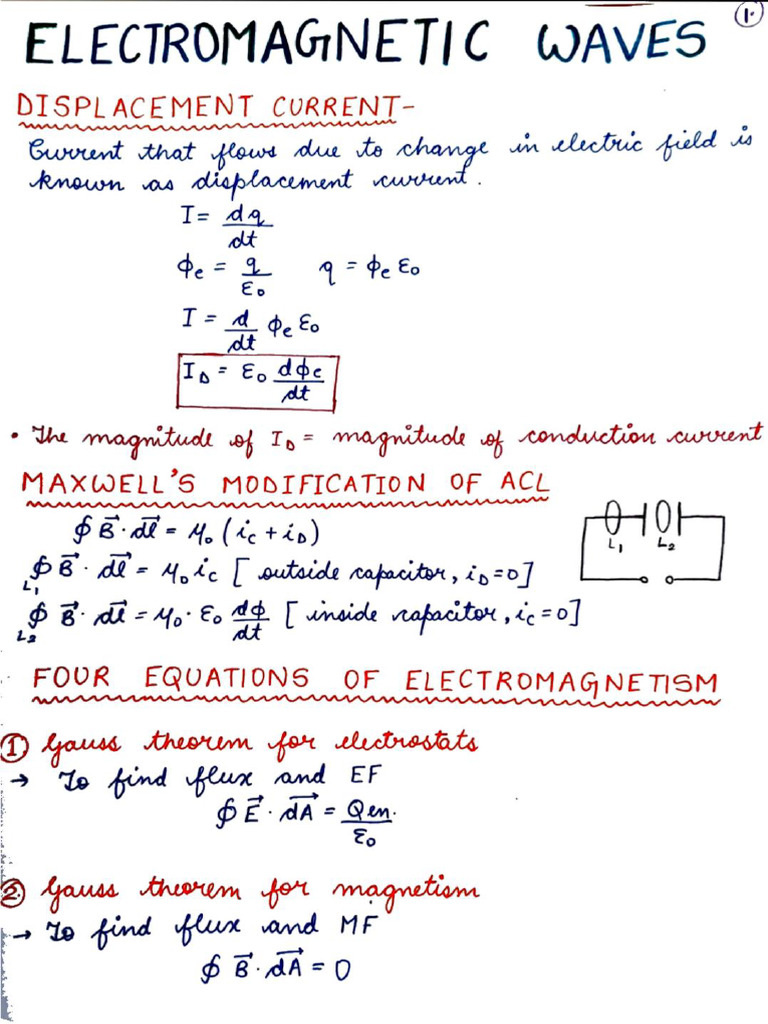 1.
ELECTROMAGNETIC WAVES
DISPLACEMENT CURRENT-
Current that flows due to change in electric field is
known as displacement current.
I = dq/dt
ϕe = q/ε0    q = ϕe ε0
I = d/dt ϕe ε0
ID = ε0 dϕe/dt
• The magnitude of ID = magnitude of conduction current
MAXWELL'S MODIFICATION OF ACL
∮ B⃗ · dl⃗ = μ0 (ic + iD)
∮L1 B⃗ · dl⃗ = μ0 ic [outside capacitor, iD = 0]
∮L2 B⃗ · dl⃗ = μ0 · ε0 dϕ/dt [inside capacitor, ic = 0]
L1 L2
FOUR EQUATIONS OF ELECTROMAGNETISM
① Gauss theorem for electrostats
→ To find flux and EF
∮ E⃗ · dA⃗ = Qen./ε0
② Gauss theorem for magnetism
→ To find flux and MF
∮ B⃗ · dA⃗ = 0